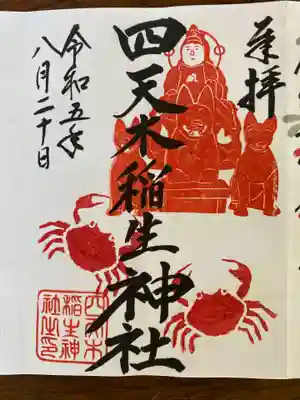 奉拝
四天木稲生神社
令和五年
八月二十日
四天木
稲生神
社之印